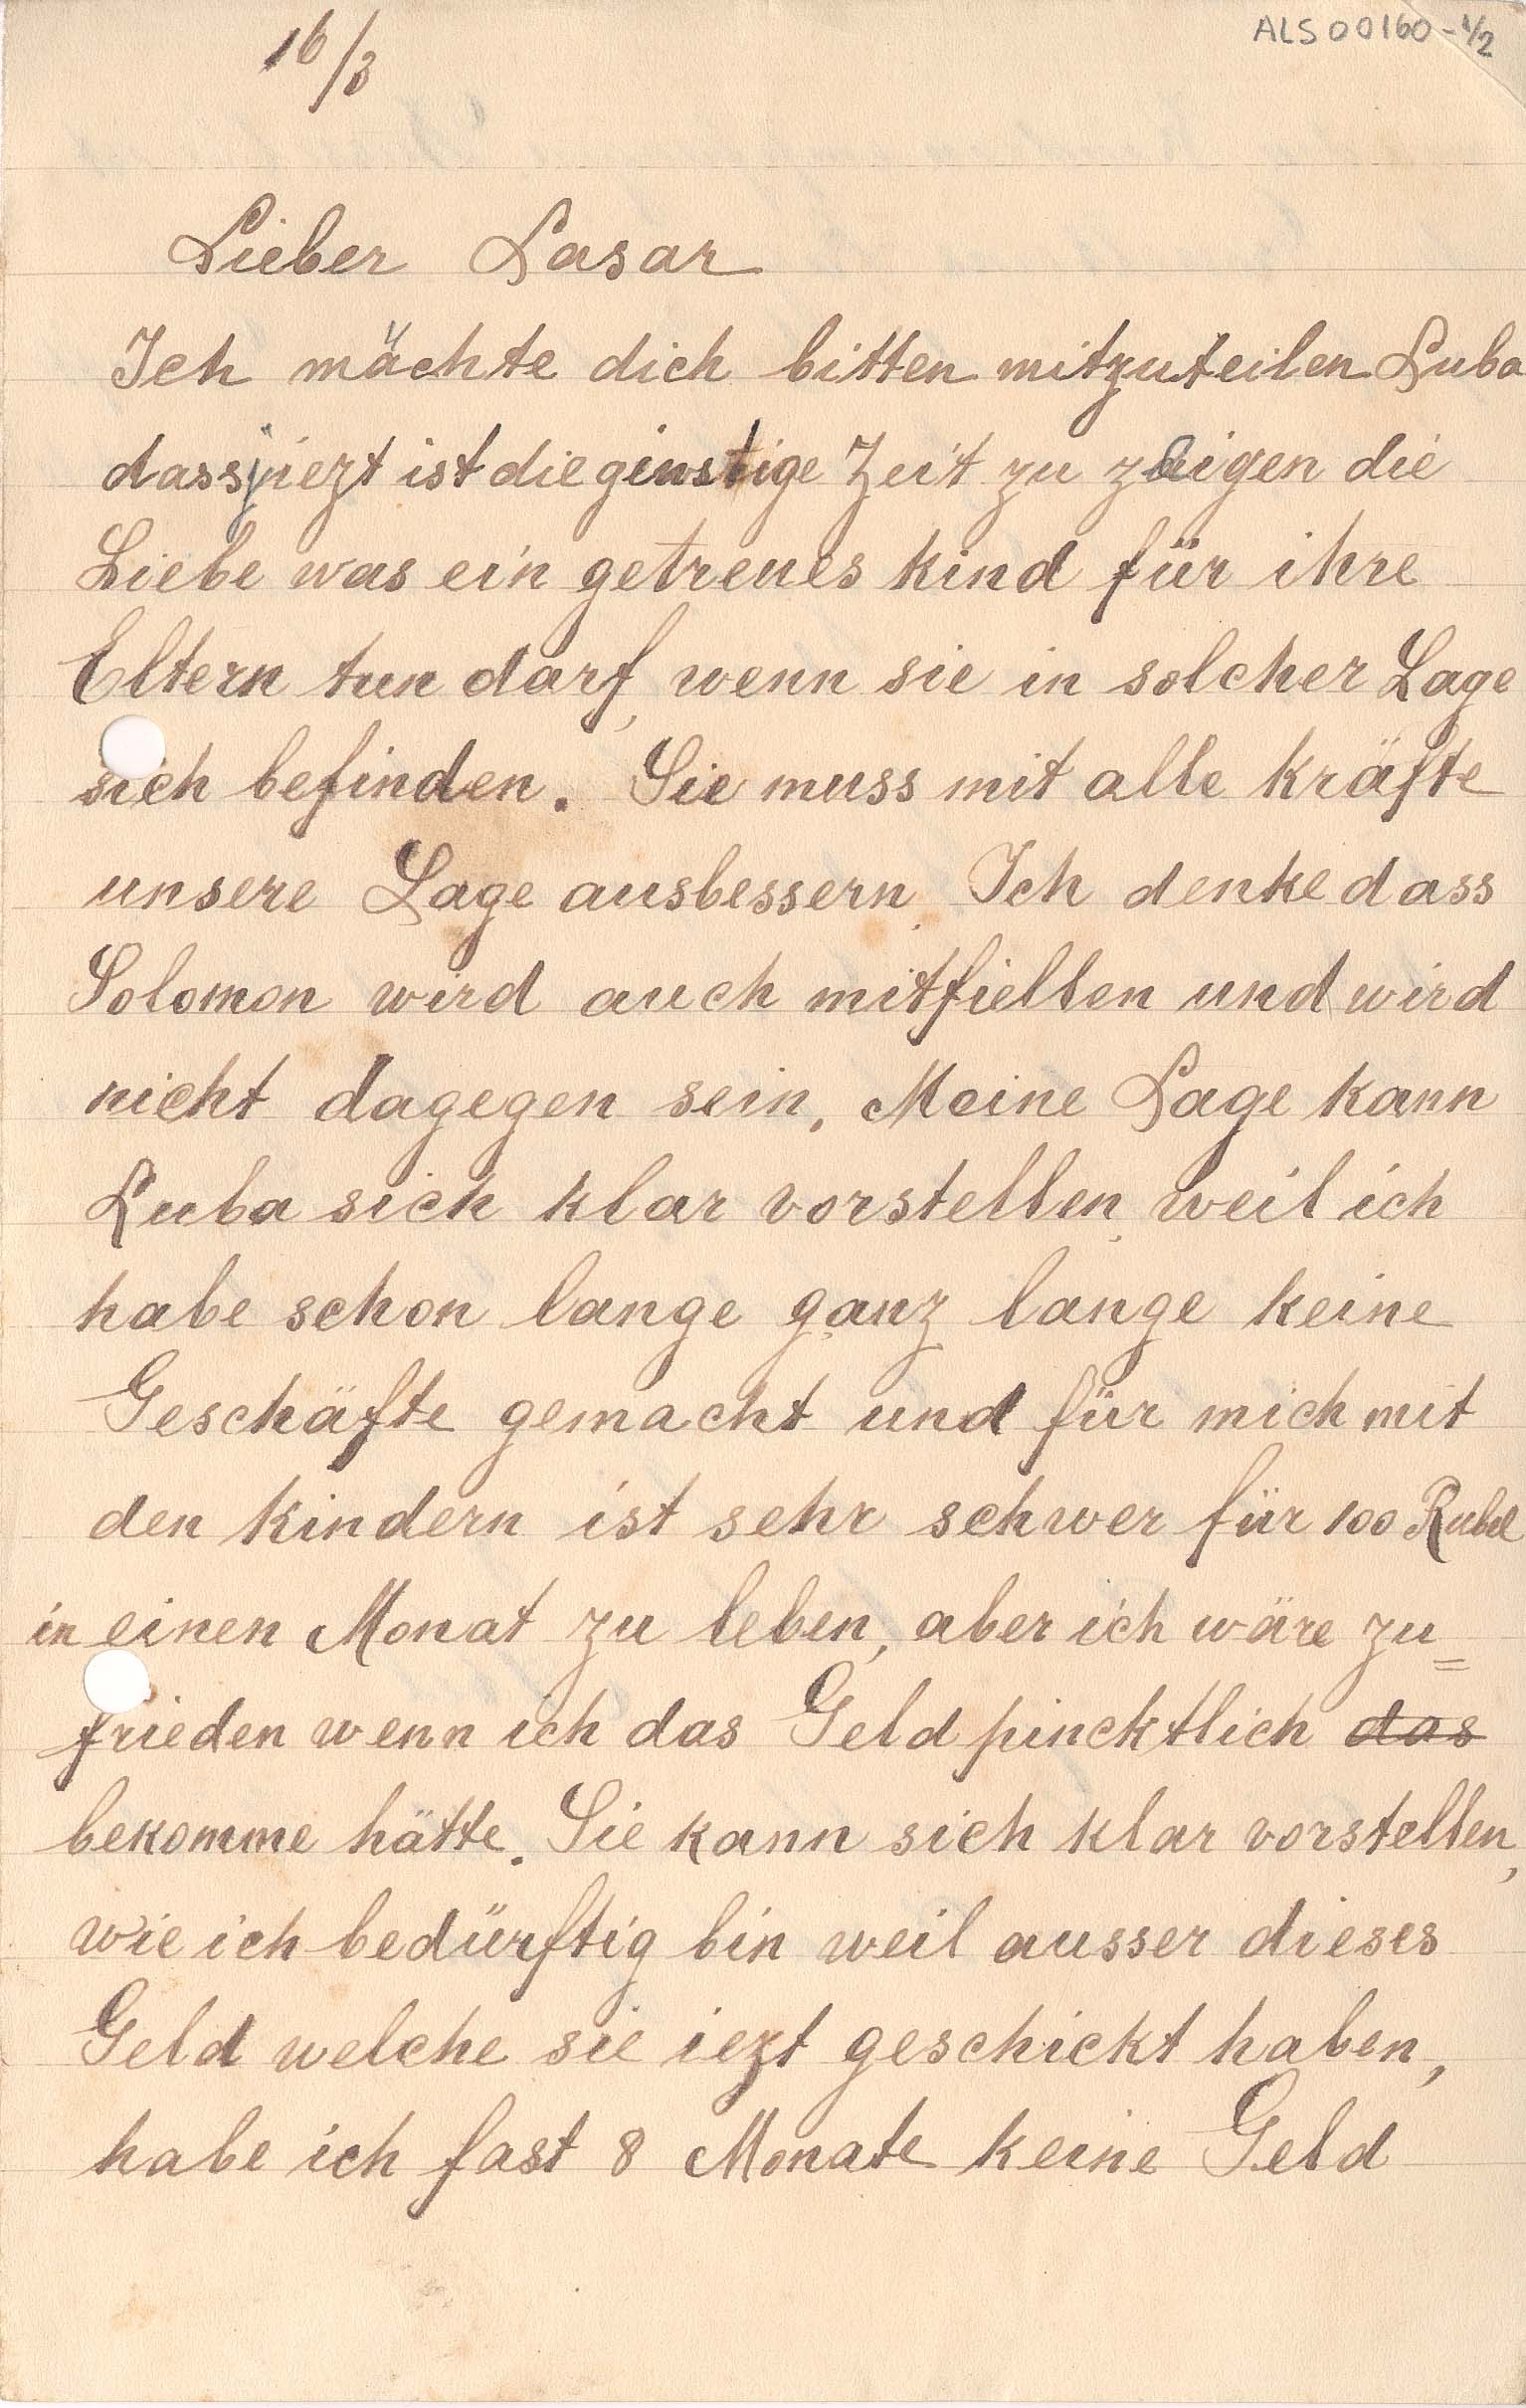 16/3
ALS 00160-1/2
Lieber Lasar
Ich mächte dich bitten mitzuteilen Luba
dass jiezt ist die ginstige Zeit zu zeigen die
Liebe was ein getreues kind für ihre
Eltern tun darf, wenn sie in solcher Lage
sich befinden. Sie muss mit alle kräfte
unsere Lage ausbessern. Ich denke dass
Solomon wird auch mitfiellen und wird
nicht dagegen sein. Meine Lage kann
Luba sich klar vorstellen, weil ich
habe schon lange ganz lange keine
Geschäfte gemacht und für mich mit
den kindern ist sehr schwer für 100 Rubel
in einen Monat zu leben, aber ich wäre zu=
frieden wenn ich das Geld pincktlich das
bekomme hätte. Sie kann sich klar vorstellen,
wie ich bedürftig bin weil ausser dieses
Geld welche sie iezt geschickt haben,
habe ich fast 8 Monate keine Geld